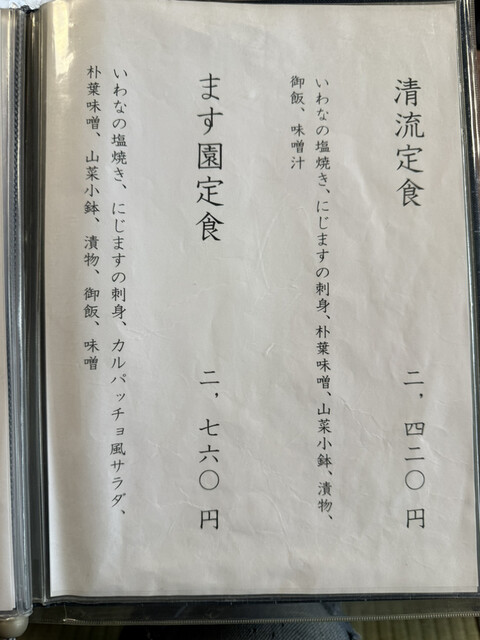 清流定食 二，四二〇円
いわなの塩焼き、にじますの刺身、朴葉味噌、山菜小鉢、漬物、
御飯、味噌汁
ます園定食 二，七六〇円
いわなの塩焼き、にじますの刺身、カルパッチョ風サラダ、
朴葉味噌、山菜小鉢、漬物、御飯、味噌